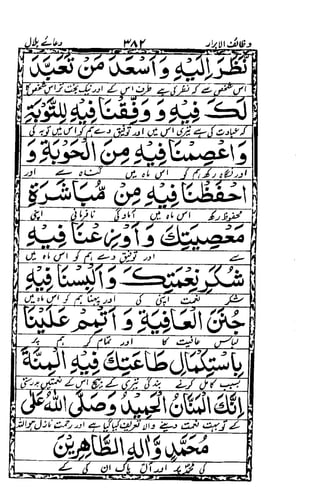 وظائف الابرار ۳۸۲ دعائے ہلال
نَظَرَ اِلَيْهِ وَ اَسْعَدَ مَنْ تَعَبَّدَ
اس شخص سے کہ نظر کی ہے طرف اس کے اور نیک بخت تر اس شخص
لَكَ فِيهِ وَ وَفِّقْنَا فِيهِ لِلتَّوْبَةِ
کو عبادت کی ہے تیری اس میں اور توفیق دے ہم کو اس میں توبہ کی
وَ اعْصِمْنَا فِيهِ مِنَ الْحَوْبَةِ وَ
اور نگاہ رکھ ہم کو اس ماہ میں گناہ سے اور
احْفَظْنَا فِيهِ مِنْ مُبَاشَرَةِ
محفوظ رکھ اس ماہ میں
مَعْصِيَتِكَ وَ اَوْزِعْنَا فِيهِ
سے اور توفیق دے ہم کو اس ماہ میں
شُكْرَ نِعْمَتِكَ وَ اَلْبِسْنَا فِيهِ
شکر نعمت اپنی کی اور پہنا ہم کو اس ماہ میں
جُنَنَ الْعَافِيَةِ وَ اَتْمِمْ عَلَيْنَا
لباس عافیت کا اور تمام کر ہم پر
بِاسْتِكْمَالِ طَاعَتِكَ فِيهِ الْمِنَّةَ
بسبب کامل کرنے بندگی تیری کے بیچ اس کے نعمتیں
اِنَّكَ الْمَنَّانُ الْحَمِيدُ وَ صَلَّى اللهُ عَلٰى
نعمت دینے والا تعریف کیا گیا ہے اور رحمت نازل
مُحَمَّدٍ وَّ اٰلِهِ الطَّاهِرِيْنَ
محمدؐ پر اور آل پاک ان کی کے